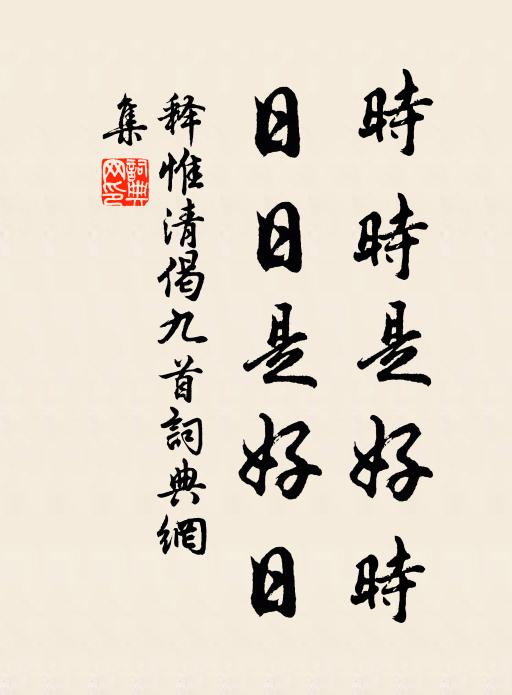 時時是好時
日日是好日
释惟清偈九首詞典網
集
詞典網印